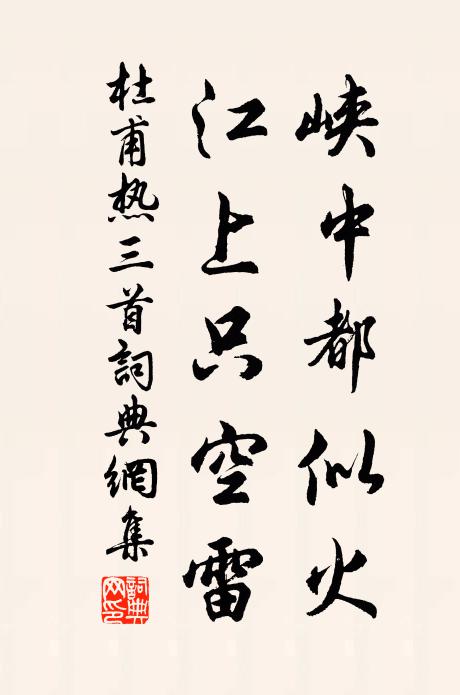 峡中都似火
江上只空雷
杜甫热三首詞典網集
詞典網印